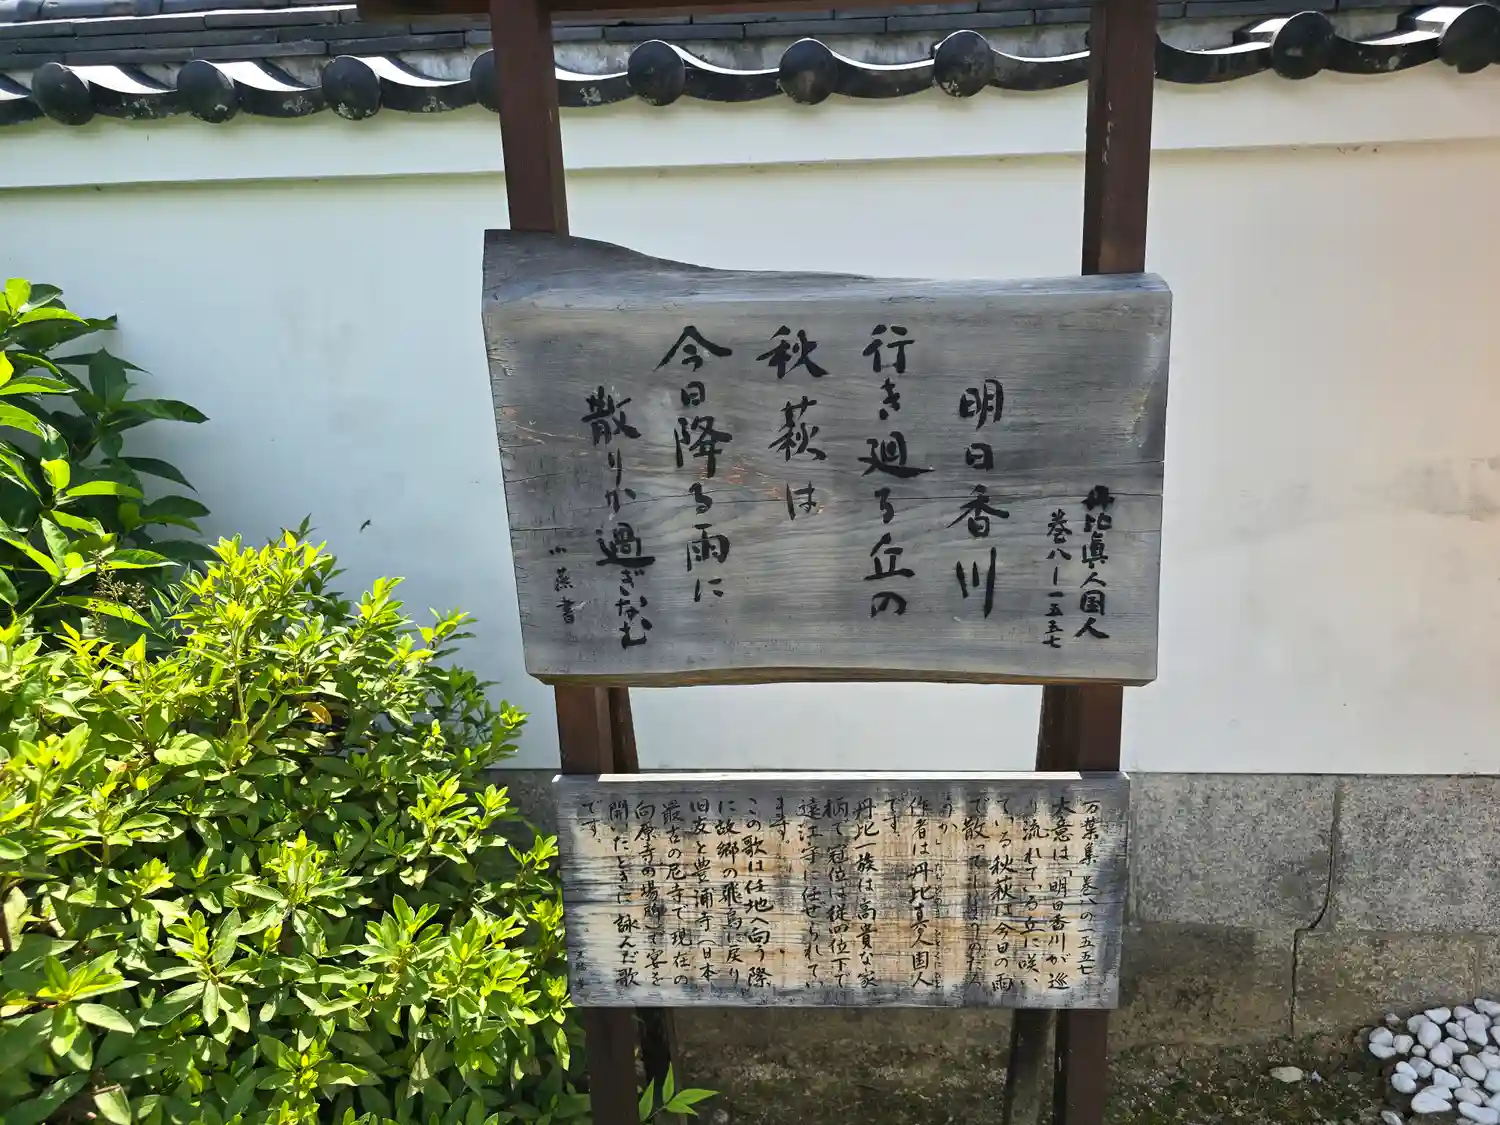 丹比眞人国人
巻八ー一五五七
明日香川
行き廻る丘の
秋萩は
今日降る雨に
散りか過ぎなむ
小燕書
万葉集 巻八の一五五七
大意は「明日香川が巡
り流れている丘に咲い
ている秋萩は今日の雨
で散ってしまうのだろ
うか」
作者は丹比真人国人
です。
丹比一族は高貴な家
柄で冠位は従四位下で
遠江守に任せられてい
ます。
この歌は任地へ向う際
に故郷の飛鳥に戻り
旧友と豊浦寺（日本
最古の尼寺で現在の
向原寺の場所）で宴を
開いたときに詠んだ歌
です。